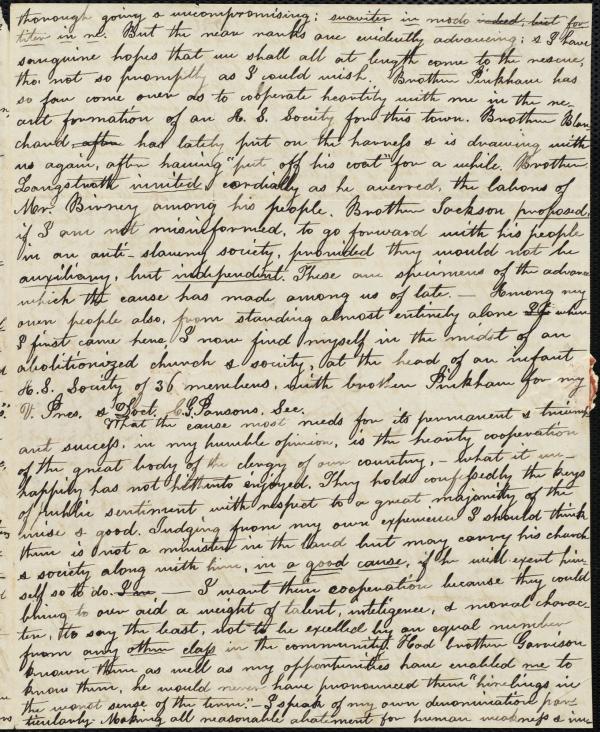 thorough going & uncompromising; suaviter in modo indeed, but for
titer in re. But the rear ranks are evidently advancing; & I have
sanguine hopes that we shall all at length come to the rescue,
tho' not so promptly as I could wish. Brother Pinkham has
so far come over as to cooperate heartily with me in the re-
cent formation of an A. S. Society for this town. Brother Blan
chard after has lately put on the harness & is drawing with
us again, after having "put off his coat" for a while. Brother
Langstroth invited, cordially as he averred, the labors of
Mr. Birney among his people. Brother Jackson proposed,
if I am not misinformed, to go forward with his people
in an anti-slavery society, provided they would not be
auxiliary, but independent. These are specimens of the advance
which the cause has made among us of late. — Among my
own people also, from standing almost entirely alone when
I first came here, I now find myself in the midst of an
abolitionized church & society, at the head of an infant
A. S. Society of 36 members, with brother Pinkham for my
V. Pres. & Doct. C. G. Parsons, Sec.
What the cause most needs for its permanent & triumph
ant success, in my humble opinion, is the hearty cooperation
of the great body of the clergy of our country, – what it un-
happily has not hitherto enjoyed. They hold confessedly the keys
of public sentiment with respect to a great majority of the
wise & good. Judging from my own experience I should think
there is not a minister in the land but may carry his church
& society along with him, in a good cause, if he will exert him
self so to do. I am — I want their cooperation because they could
bring to our aid a weight of talent, inteligence, & moral charac-
ter, to say the least, not to be excelled by an equal number
from any other class in the community. Had brother Garrison
known them as well as my opportunities have enabled me to
know them, he would never have pronounced them "hirelings in
the worst sense of the term." – I speak of my own denomination par-
ticularly. Making all reasonable abatement for human weakness & im